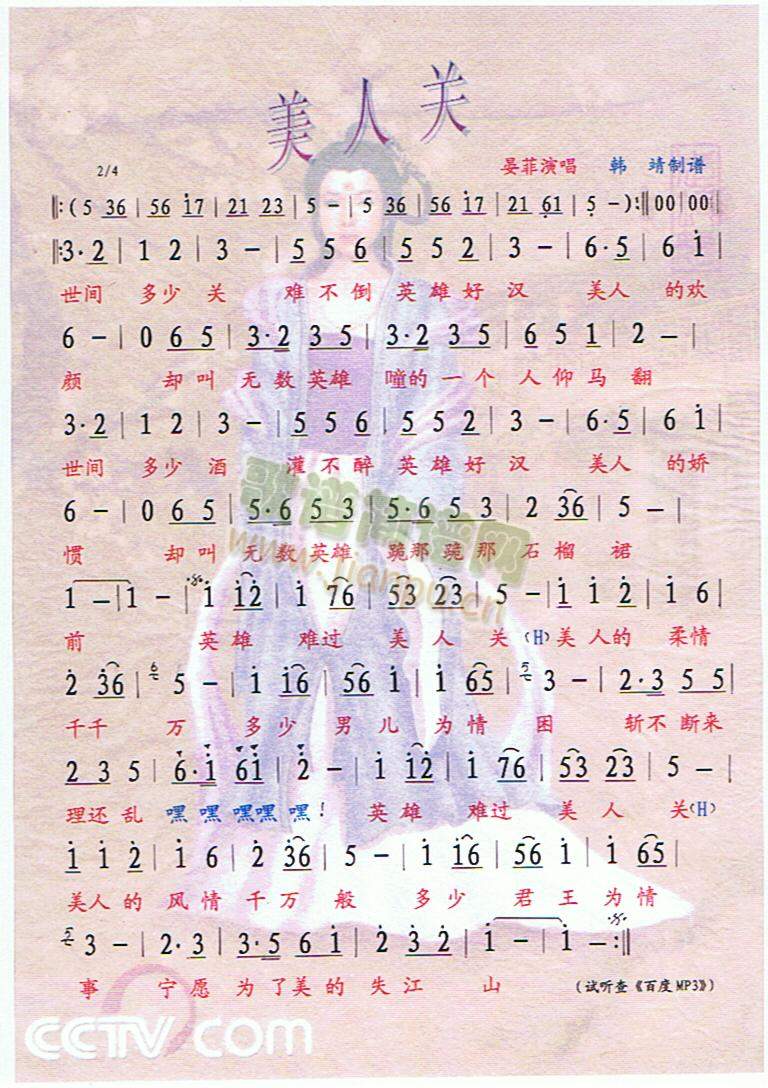 美人关
2/4 晏菲演唱 韩 靖制谱
‖:( 5 36 | 56 i7 | 21 23 | 5 - | 5 36 | 56 i7 | 21 61 | 5 - ):‖ 00 | 00 |
‖:3·2 | 1 2 | 3 - | 5 5 6 | 5 5 2 | 3 - | 6·5 | 6 i |
世间 多少 关 难不倒 英雄好 汉 美人 的欢
6 - | 0 6 5 | 3·2 3 5 | 3·2 3 5 | 6 5 1 | 2 - |
颜 却叫 无数英雄 噇的一个 人仰马 翻
3·2 | 1 2 | 3 - | 5 5 6 | 5 5 2 | 3 - | 6·5 | 6 i |
世间 多少 酒 灌不醉 英雄好 汉 美人 的娇
6 - | 0 6 5 | 5·6 5 3 | 5·6 5 3 | 2 36 | 5 - |
惯 却叫 无数英雄 跪那跪那 石榴 裙
歌谱简谱网
www.jianpu.cn
1 - | 1 - | i i2 | i 76 | 53 23 | 5 - | i i 2 | i 6 |
前 英雄 难过 美人 关(H)美人的 柔情
2 36 | 5 - | i i6 | 56 i | i 65 | 3 - | 2·3 5 5 |
千千 万 多少 男儿 为情 困 斩不断来
2 3 5 | 6·i 6i | 2 - | i i2 | i 76 | 53 23 | 5 - |
理还乱 嘿嘿嘿嘿嘿! 英雄 难过 美人 关(H)
i i 2 | i 6 | 2 36 | 5 - | i i6 | 56 i | i 65 |
美人的 风情 千万 般 多少 君王 为情
3 - | 2·3 | 3·5 6 i | 2 3 2 | i - | i - :‖
事 宁愿 为了美的 失江 山 (试听查《百度MP3》)
CCTV com